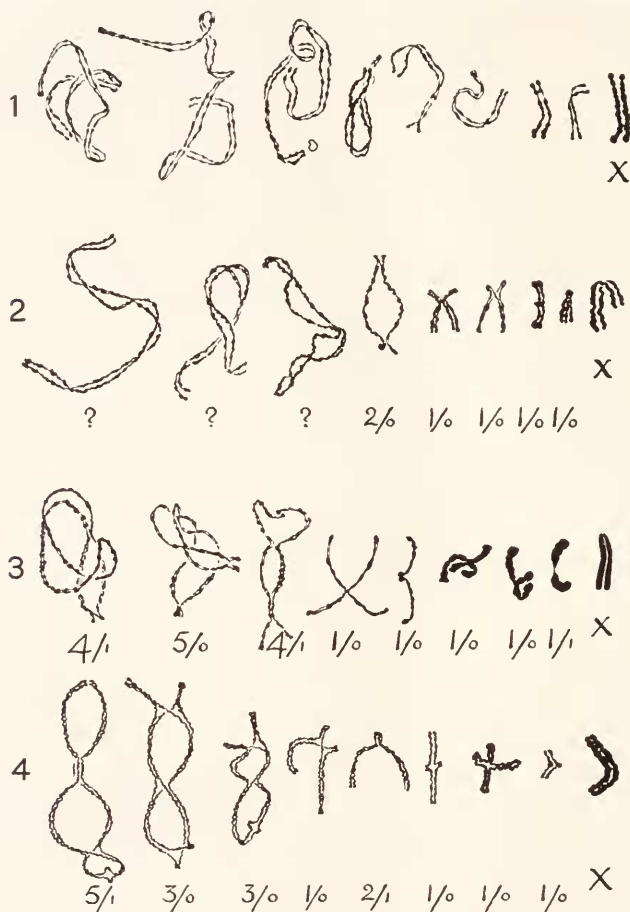 1
X
2
X
? ? ? 2/0 1/0 1/0 1/0 1/0
3
X
4/1 5/0 4/1 1/0 1/0 1/0 1/0 1/1
4
X
5/1 3/0 3/0 1/0 2/1 1/0 1/0 1/0